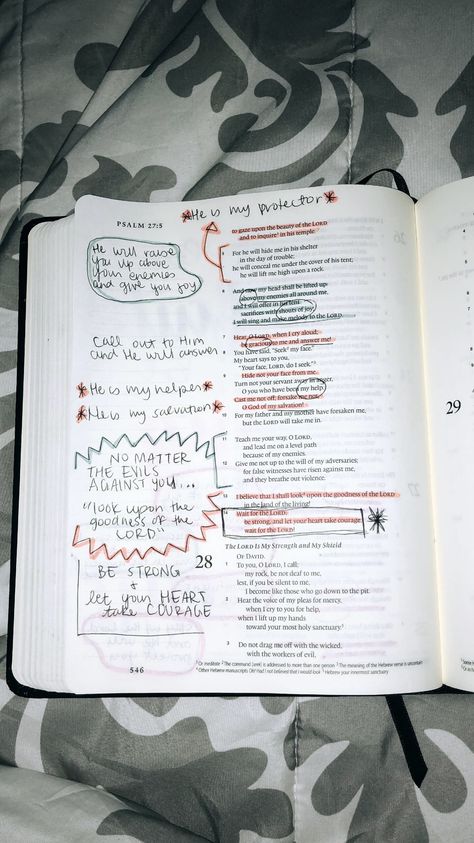 *He is my protector*
PSALM 27:5
to gaze upon the beauty of the LORD
and to inquire¹ in his temple.
He will raise
you up above
your enemies
and give you joy
5 For he will hide me in his shelter
in the day of trouble;
he will conceal me under the cover of his tent;
he will lift me high upon a rock.
6 And now my head shall be lifted up
above my enemies all around me,
and I will offer in his tent
sacrifices with shouts of joy;
I will sing and make melody to the LORD.
Call out to Him
and He will answer
7 Hear, O LORD, when I cry aloud;
be gracious to me and answer me!
8 You have said, "Seek² my face."
My heart says to you,
"Your face, LORD, do I seek."³
9 Hide not your face from me.
Turn not your servant away in anger,
O you who have been my help.
Cast me not off; forsake me not,
O God of my salvation!
10 For my father and my mother have forsaken me,
but the LORD will take me in.
*He is my helper*
*He is my salvation*
11 Teach me your way, O LORD,
and lead me on a level path
because of my enemies.
12 Give me not up to the will of my adversaries;
for false witnesses have risen against me,
and they breathe out violence.
NO MATTER
THE EVILS
AGAINST YOU...
"look upon the
goodness of the
LORD"
13 I believe that I shall look⁴ upon the goodness of the LORD
in the land of the living!
14 Wait for the LORD;
be strong, and let your heart take courage;
wait for the LORD!
BE STRONG
+
let your HEART
take COURAGE
The LORD Is My Strength and My Shield
28
OF DAVID.
1 To you, O LORD, I call;
my rock, be not deaf to me,
lest, if you be silent to me,
I become like those who go down to the pit.
2 Hear the voice of my pleas for mercy,
when I cry to you for help,
when I lift up my hands
toward your most holy sanctuary.⁵
3 Do not drag me off with the wicked,
with the workers of evil,
¹ Or meditate ² The command (seek) is addressed to more than one person ³ The meaning of the Hebrew verse is uncertain
⁴ Other Hebrew manuscripts Oh! Had I not believed that I would look ⁵ Hebrew your innermost sanctuary
546
29